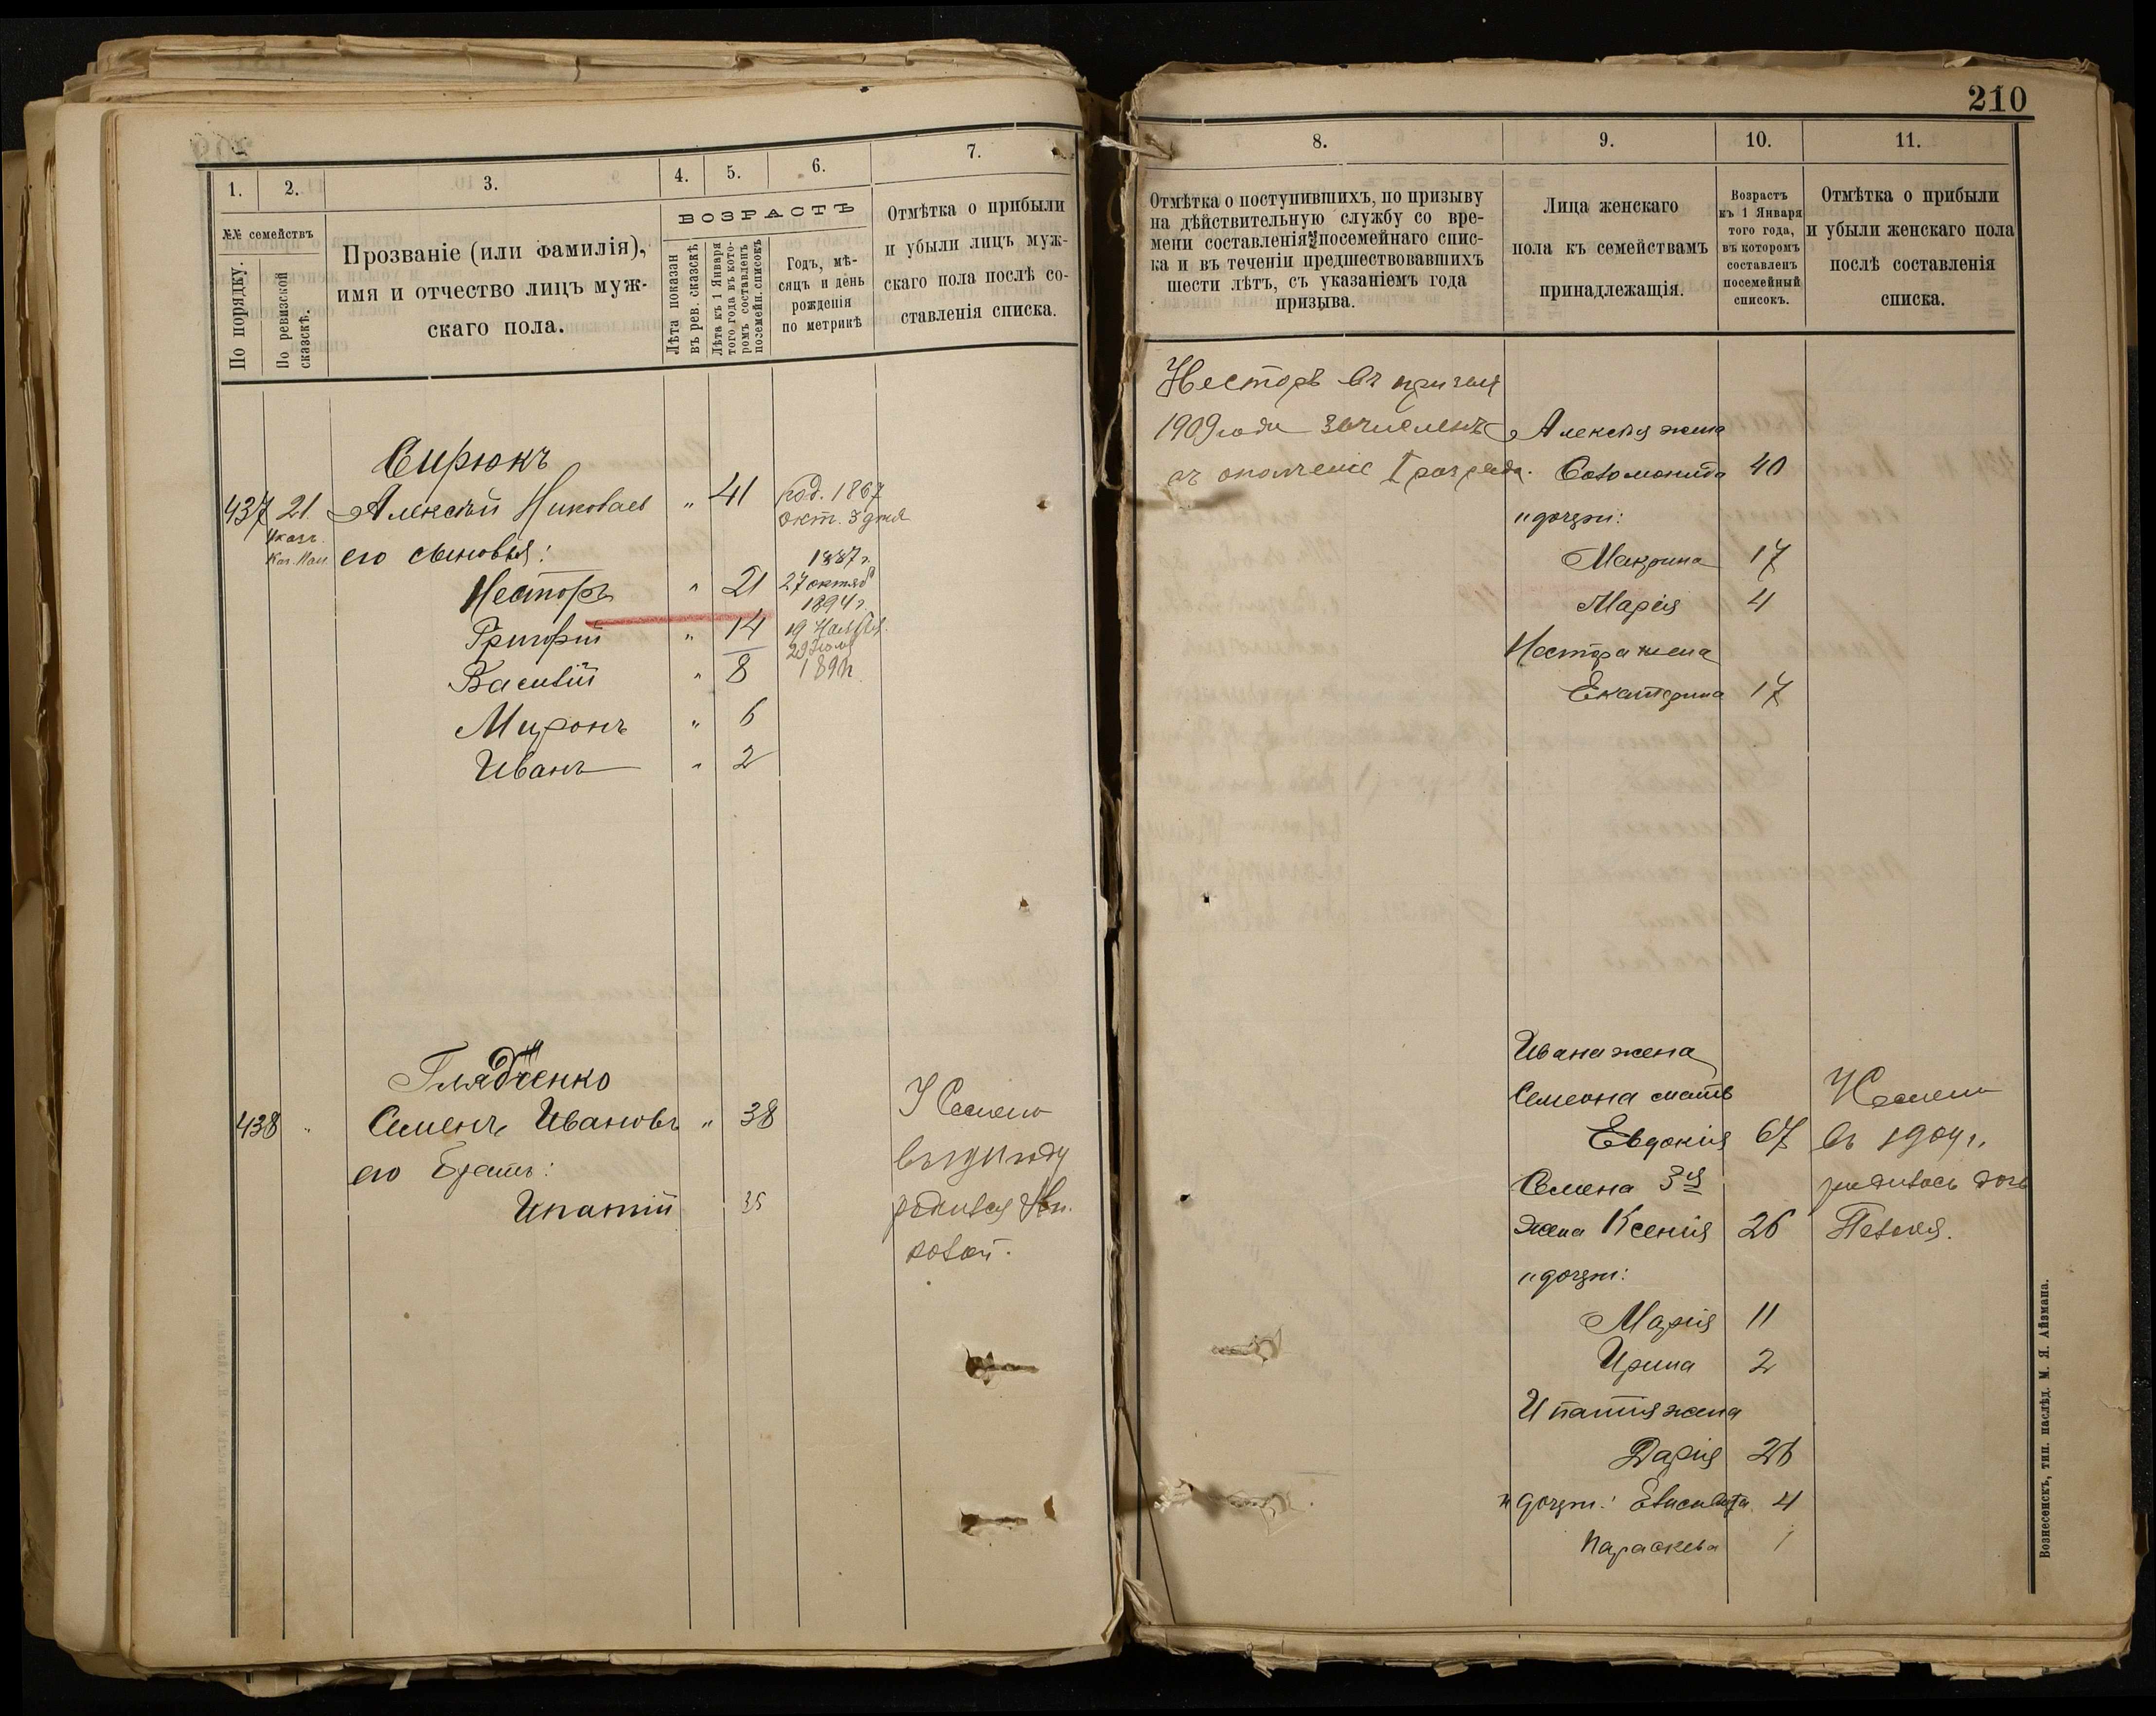 1.
2.
3.
4.
5.
6.
7.
№№ семействъ
По порядку.
По ревизской сказскѣ.
Прозваніе (или фамилія),
имя и отчество лицъ муж-
скаго пола.
ВОЗРАСТЪ
Лѣта показан
въ рев. сказскѣ
Лѣта къ 1 Января
того года въ кото-
ромъ составленъ
посемейн. списокъ
Годъ, мѣ-
сяцъ и день
рожденія
по метрикѣ
Отмѣтка о прибыли
и убыли лицъ муж-
скаго пола послѣ со-
ставленія списка.
Сирюкъ
437 21 Алексѣй Николаев " 41 род. 1867
окт. 3 дня
его сыновья: 1887 г.
Несторъ " 21 27 октяб
1894 г.
Григорій " 14 19
Василій " 8
Миронъ " 6
Иванъ " 2
Глядченко
438 " Семенъ Ивановъ " 38
его братъ:
Ипатій 35
У Семена
году
родился
210
8.
9.
10.
11.
Отмѣтка о поступившихъ, по призыву
на дѣйствительную службу со вре-
мени составленія посемейнаго спис-
ка и въ теченіи предшествовавшихъ
шести лѣтъ, съ указаніемъ года
призыва.
Лица женскаго
пола къ семействамъ
принадлежащія.
Возрастъ
къ 1 Января
того года,
въ которомъ
составленъ
посемейный
списокъ.
Отмѣтка о прибыли
и убыли женскаго пола
послѣ составленія
списка.
Несторъ въ призыв
1909 года зачисленъ
въ ополченіе I разряда.
Алексѣя жена
Соломонида 40
и дочери:
Макрина 17
Марія 4
Нестора жена
Екатерина 17
Ивана жена
Семеона мать
Евдокія 67
Семена 3я
жена Ксенія 26
и дочери:
Марія 11
Ирина 2
Ипатія жена
Дарія 26
и дочери: Елисавета 4
Параскева 1
У Семена
въ 1909 г.
родилась дочь
Пелагія.
Вознесенскъ, тип. наслѣд. М. Я. Айзмана.